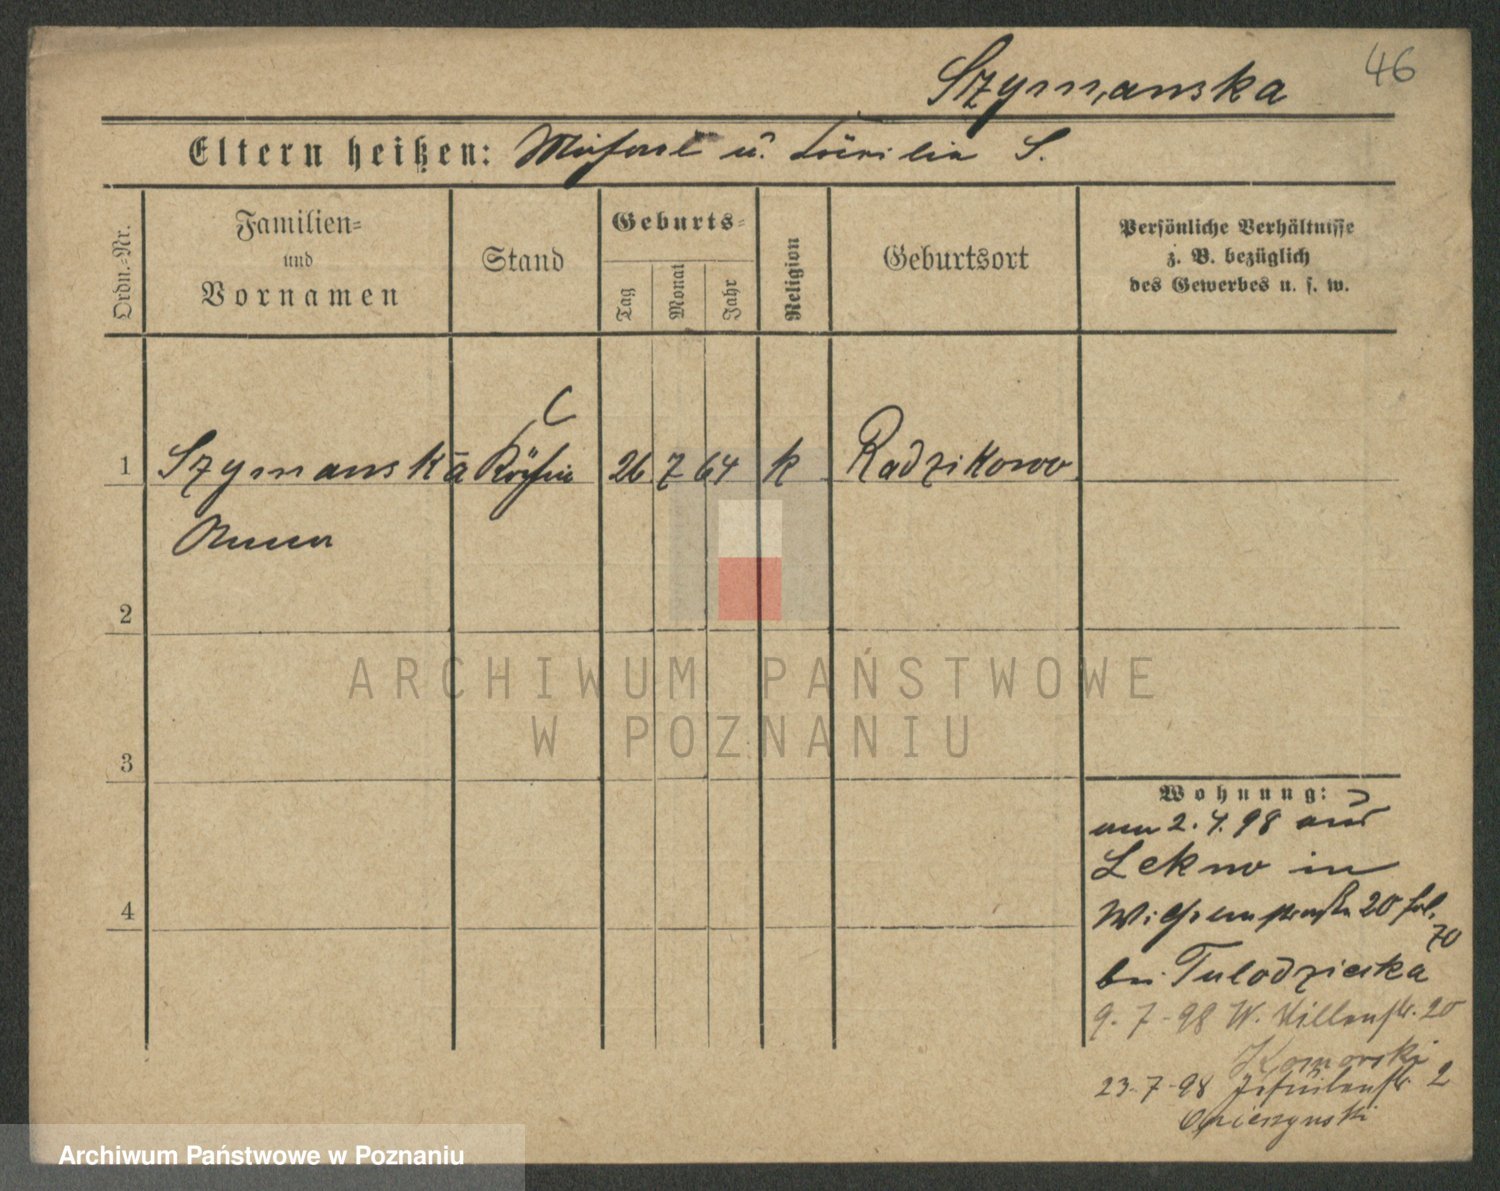 46
Szymanska
Eltern heißen: Michael u. Cäcilia S.
Ordn.-Nr.
Familien-
und
Vornamen
Stand
Geburts-
Tag
Monat
Jahr
Religion
Geburtsort
Persönliche Verhältnisse
z. B. bezüglich
des Gewerbes u. s. w.
1 Szymanska Köchin 26 7 64 k Radzikowo
Anna
2
3
4
Wohnung:
am 2.4.98 aus
Lekno in
Wilhelmstraße 20
70
bei Tulodzieska
9.-7-98 W. 20
Komorski
23-7-98 Jesuitenstr. 2
ARCHIWUM PAŃSTWOWE
W POZNANIU
Archiwum Państwowe w Poznaniu